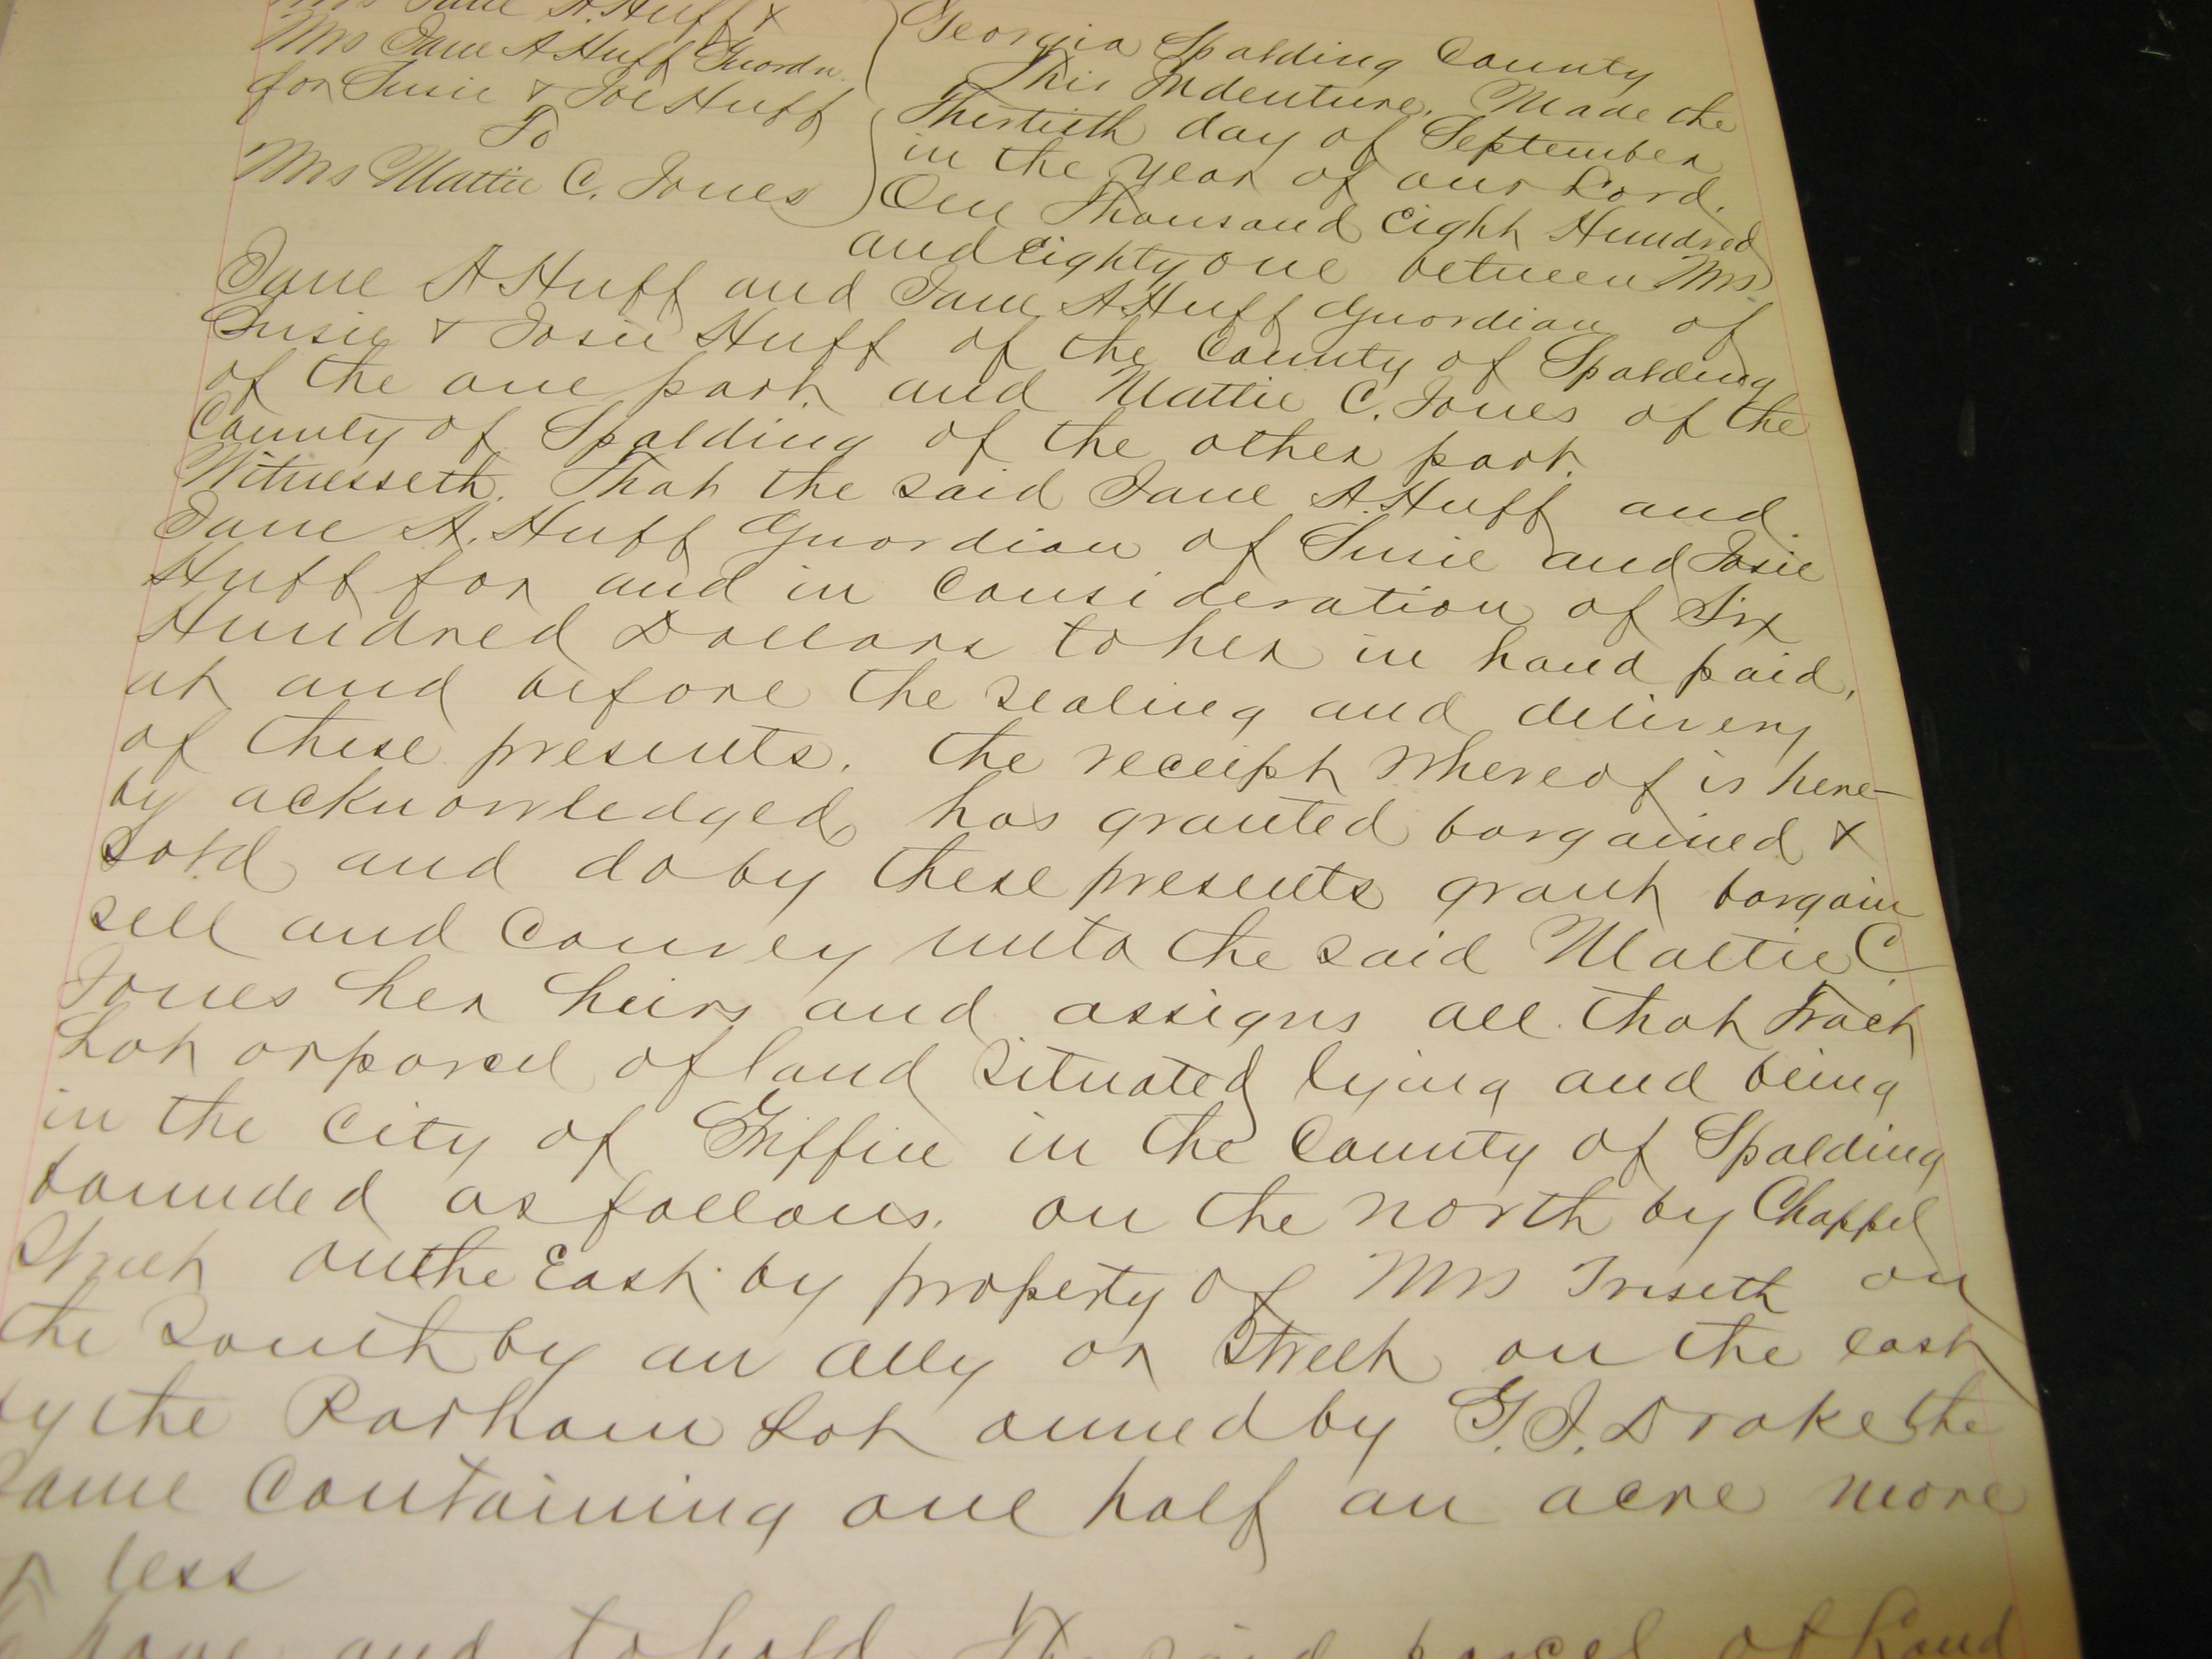 Mrs Jane A. Huff &
Mrs Jane A Huff Guardn.
for Susie & Joe Huff
To
Mrs Mattie C. Jones
Georgia Spalding County
This Indenture, Made the
Thirtieth day of September
in the year of our Lord.
One Thousand Eight Hundred
and Eighty one between Mrs
Jane A Huff and Jane A Huff Guardian of
Susie & Josie Huff of the County of Spalding
of the one part and Mattie C. Jones of the
County of Spalding of the other part.
Witnesseth. That the said Jane A. Huff and
Jane A. Huff Guardian of Susie and Josie
Huff for and in Consideration of Six
Hundred Dollars to her in hand paid,
at and before the sealing and delivery
of these presents. the receipt whereof is here-
by acknowledged has granted bargained &
sold and do by these presents grant bargain
sell and Convey unto the said Mattie C.
Jones her heirs and assigns all that Tract
Lot or parcel of land situated lying and being
in the City of Griffin in the County of Spalding
bounded as follows. on the north by Chappel
Street on the East by property of Mrs Triseth on
the South by an Ally or Street on the east
by the Parham Lot owned by G. J. Drake the
Same Containing one half an acre more
or less
have and to hold The said parcel of Land